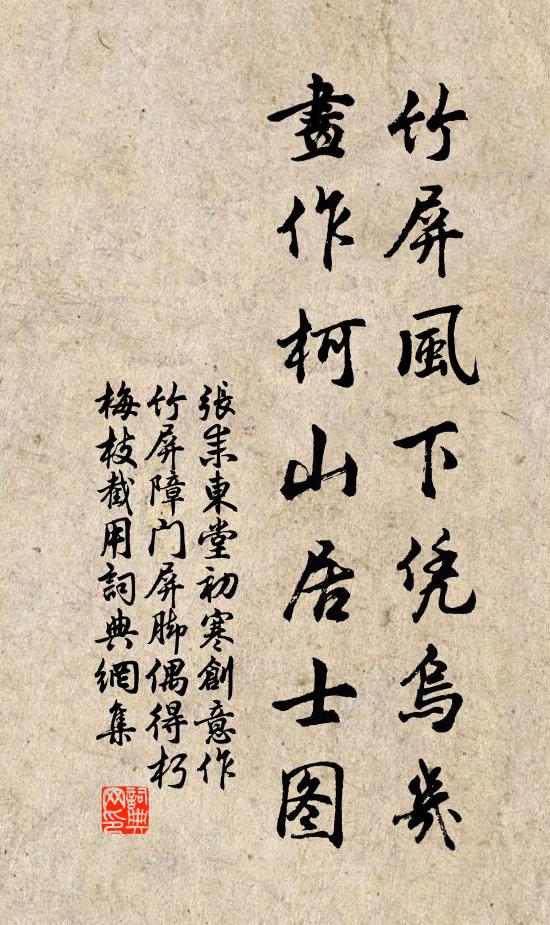 竹屏風下凭烏几
畫作柯山居士图
張耒東堂初寒創意作
竹屏障门屏脚偶得朽
梅枝截用詞典網集
詞典网印